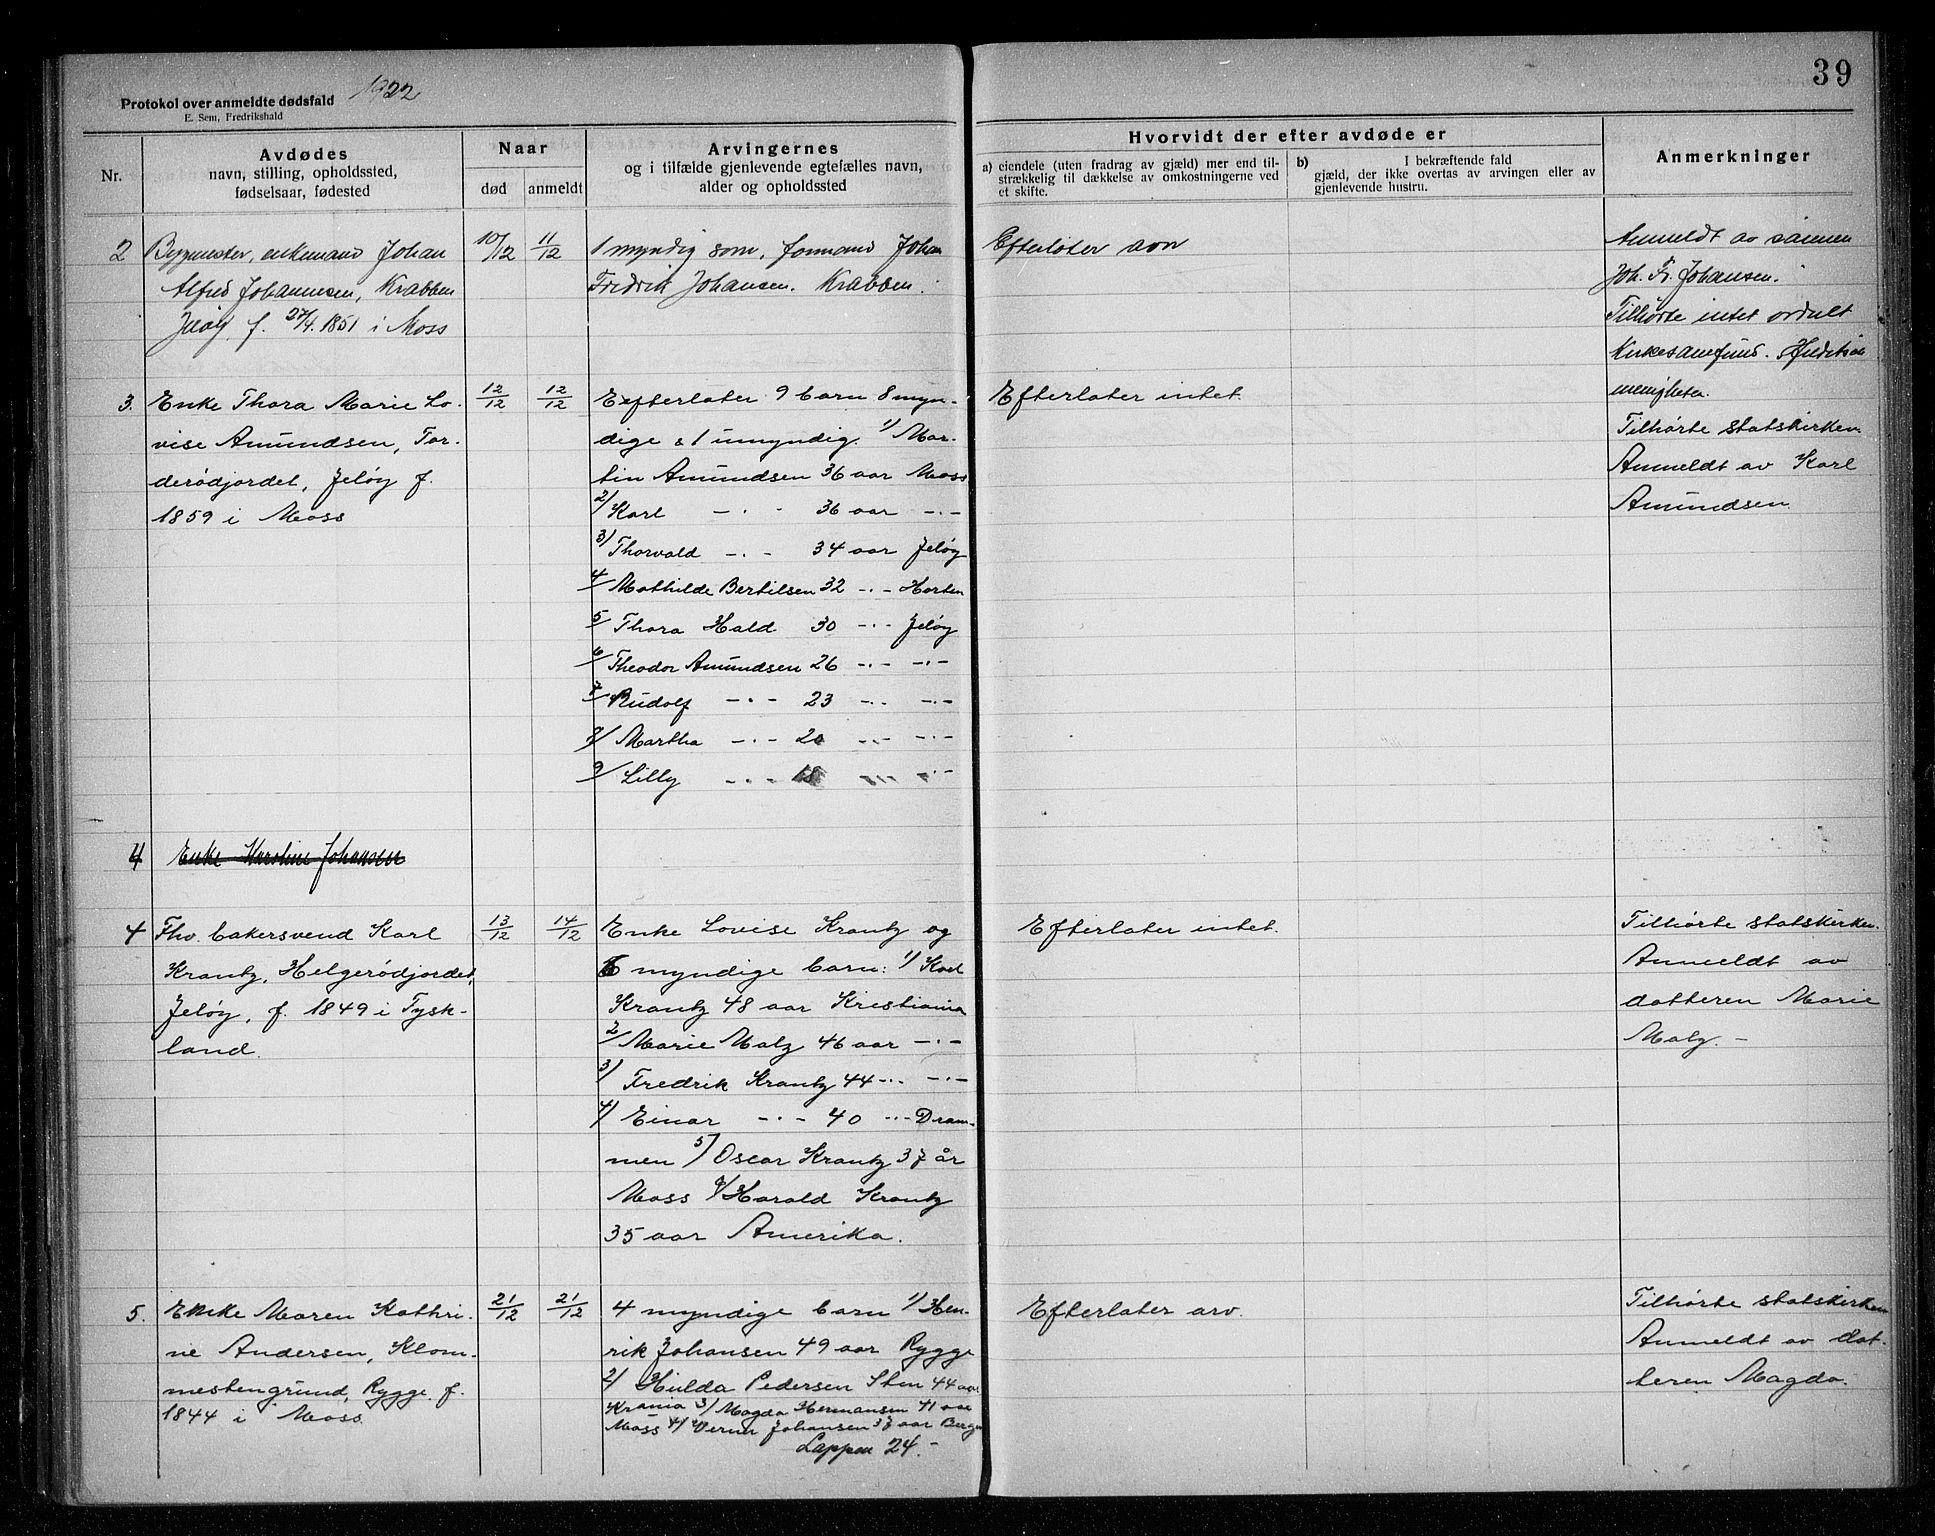 39
Protokol over anmeldte dødsfald 1922
E. Sem, Fredrikshald
Nr.
Avdødes
navn, stilling, opholdssted,
fødselsaar, fødested
Naar
død
anmeldt
Arvingernes
og i tilfælde gjenlevende egtefælles navn,
alder og opholdssted
Hvorvidt der efter avdøde er
a) eiendele (uten fradrag av gjæld) mer end til-
strækkelig til dækkelse av omkostningerne ved
et skifte.
b) I bekræftende fald
gjæld, der ikke overtas av arvingen eller av
gjenlevende hustru.
Anmerkninger
2
Bygmester, enkemand Johan
Alfred Johannesen, Krabben
Jeløy, f. 27/4. 1851 i Moss
10/12
11/12
1 myndig søn, formand Johan
Fredrik Johansen. Krabben.
Efterlater arv
Anmeldt av sønnen
Joh. Fr. Johansen.
Tilhørte intet
Kirkesamfund.
menigheten.
3.
Enke Thora Marie Lo-
vise Amundsen, Tor-
derødjordet, Jeløy f.
1859 i Moss
12/12
12/12
Efterlater 9 barn 8 myn-
dige & 1 umyndig. 1/ Mar-
tin Amundsen 36 aar Moss
2/ Karl - . - 36 aar - . -
3/ Thorvald - . - 34 aar Jeløy
4/ Mathilde Bertilsen 32 - . - Horten
5/ Thora Hald 30 - . - Jeløy
6/ Theodor Amundsen 26 - . - - . -
7/ Rudolf - . - 23 - . - - . -
8/ Martha - . - 20 - . - - . -
9/ Lilly - . - 18 - . - - . -
Efterlater intet.
Tilhørte statskirken.
Anmeldt av Karl
Amundsen
4
Enke Karoline Johansen
4
Fhv. bakersvend Karl
Krantz, Helgerødjordet,
Jeløy, f. 1849 i Tysk-
land.
13/12
14/12
Enke Lovise Krantz og
6 myndige barn: 1/ Karl
Krantz 48 aar Kristiania
2/ Marie Malz 46 aar - . -
3/ Fredrik Krantz 44 - . - - . -
4/ Einar - . - 40 - . - Dram-
men 5/ Oscar Krantz 37 år
Moss 6/ Harald Krantz
35 aar Amerika.
Efterlater intet.
Tilhørte statskirken.
Anmeldt av
datteren Marie
Malz. -
5.
Enke Maren Kathri-
ne Andersen, Klom-
mestengrund, Rygge f.
1844 i Moss.
21/12
21/12
4 myndige barn 1/ Hen-
rik Johansen 49 aar Rygge
2/ Hulda Pedersen Sten 44 aar
Krania 3/ Magda Hermansen 41 aar
Moss 4/ Verner Johansen 37 aar Bergen
Lappen 24. -
Efterlater arv.
Tilhørte statskirken
Anmeldt av dat-
teren Magda.